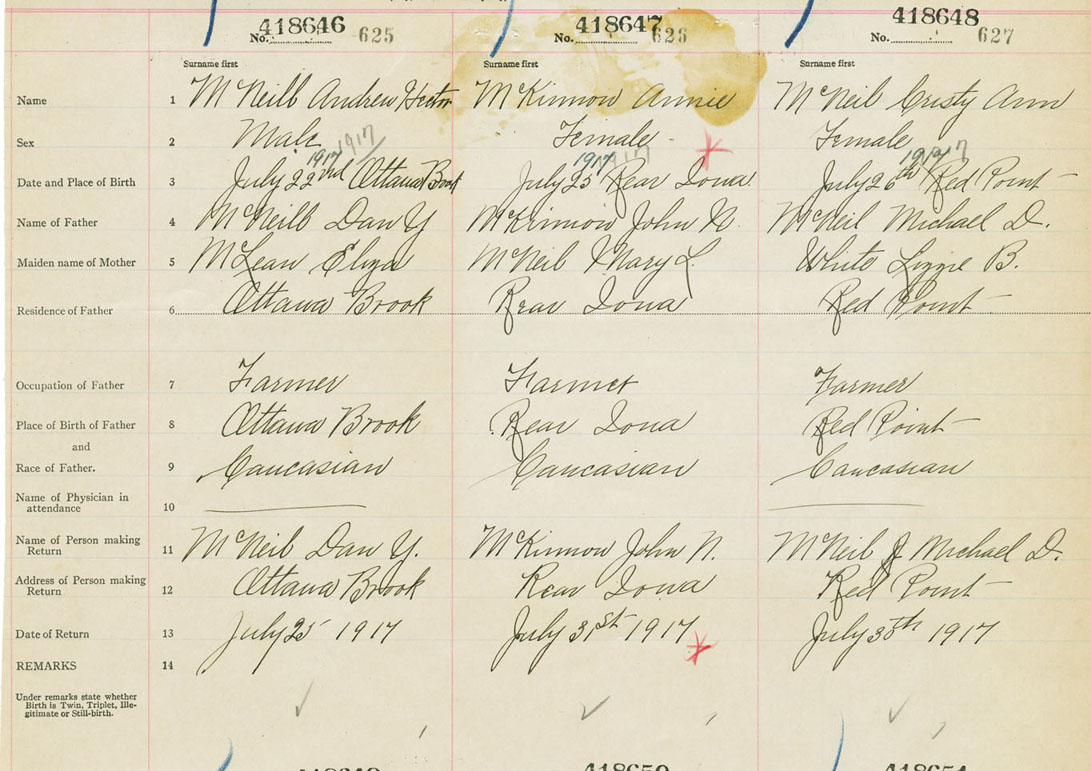 418646 418647 418648
No. 625 No. 626 No. 627
Surname first Surname first Surname first
Name 1 McNeill Andrew Hector McKinnon Annie McNeil Cristy Ann
Sex 2 Male Female Female
1917 1917 1917 1917
Date and Place of Birth 3 July 22nd Ottawa Brook July 25 Rear Iona July 26th Red Point
Name of Father 4 McNeill Dan Y McKinnon John N. McNeil Michael D.
Maiden name of Mother 5 McLean Eliza McNeil Mary L. White Lizzie B.
Residence of Father 6 Ottawa Brook Rear Iona Red Point
Occupation of Father 7 Farmer Farmer Farmer
Place of Birth of Father 8 Ottawa Brook Rear Iona Red Point
and
Race of Father. 9 Caucasian Caucasian Caucasian
Name of Physician in
attendance 10
Name of Person making
Return 11 McNeil Dan Y. McKinnon John N. McNeil Michael D.
Address of Person making
Return 12 Ottawa Brook Rear Iona Red Point
Date of Return 13 July 25 1917 July 31st 1917 July 30th 1917
REMARKS 14
Under remarks state whether
Birth is Twin, Triplet, Ille-
gitimate or Still-birth.
418650